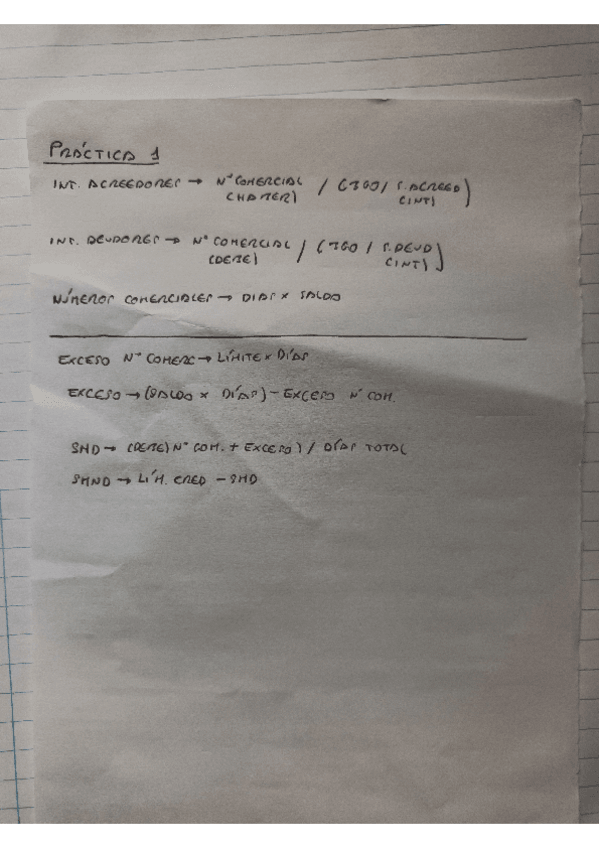 PRÁCTICA 1
INT. ACREEDORES → Nº COMERCIAL / (360 / S. ACREED)
(HABER) (INT)
INT. DEUDORES → Nº COMERCIAL / (360 / S. DEUD)
(DEBE) (INT)
NÚMEROS COMERCIALES → DIAS × SALDO
EXCESO Nº COMERC → LÍMITE × DÍAS
EXCESO → (SALDO × DÍAS) - EXCESO Nº COM.
SMD → (DEBE) Nº COM. + EXCESO) / DÍAS TOTAL
SMND → LÍM. CRED - SMD